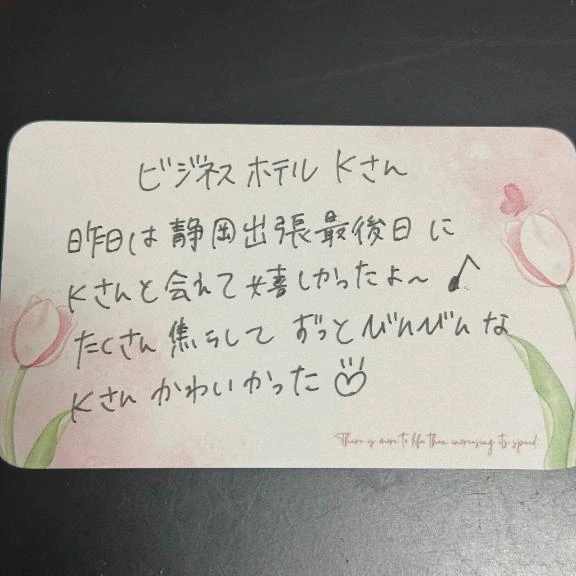 ビジネスホテル Kさん
昨日は静岡出張最後日に
Kさんと会れて嬉しかったよ〜♪
たくさん焦らして ずっとびんびんな
Kさん かわいかった
There is more to life than increasing its speed.